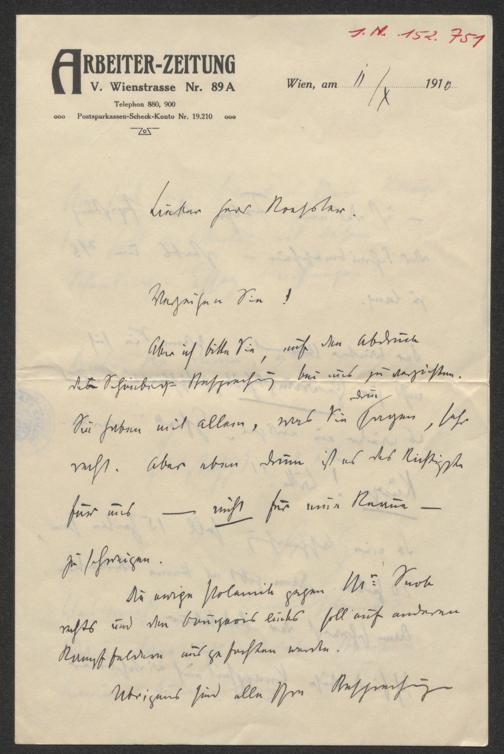 I.N. 152.751
ARBEITER-ZEITUNG
V. Wienstrasse Nr. 89A
Telephon 880, 900
ooo Postsparkassen-Scheck-Konto Nr. 19.210 ooo
Wien, am 11/X 1910
Lieber Herr Roessler.
Verzeihen Sie!
Aber ich bitte Sie, auf den Abdruck
der Schönberg-Besprechung bei uns zu verzichten.
Sie haben mit allem, was Sie drin sagen, sehr
recht. Aber eben drum ist es das Richtigste
für uns — nicht für meine Person —
zu schweigen.
Die ewige Polemik gegen Mr. Snob
rechts und den bourgeois links soll auf anderen
Kampffeldern ausgefochten werden.
Übrigens sind alle Ihre Besprechungen